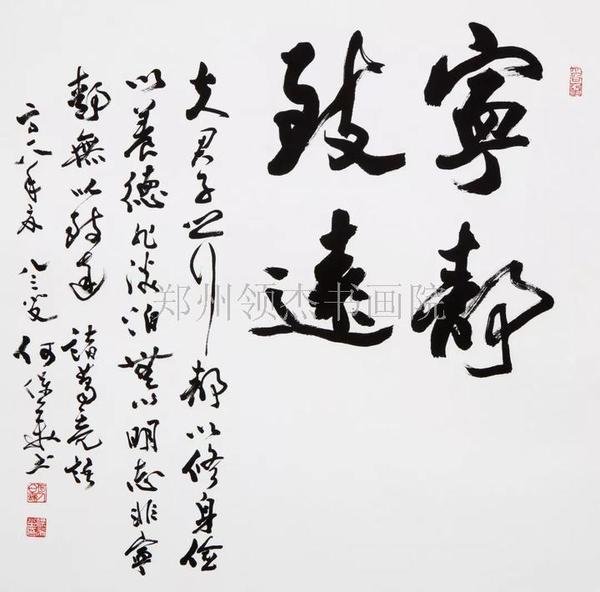 寧靜
致遠
夫君子之行靜以修身儉
以養德非淡泊無以明志非寧
靜無以致遠 諸葛亮語
八年 八三叟 何
郑州领杰书画院